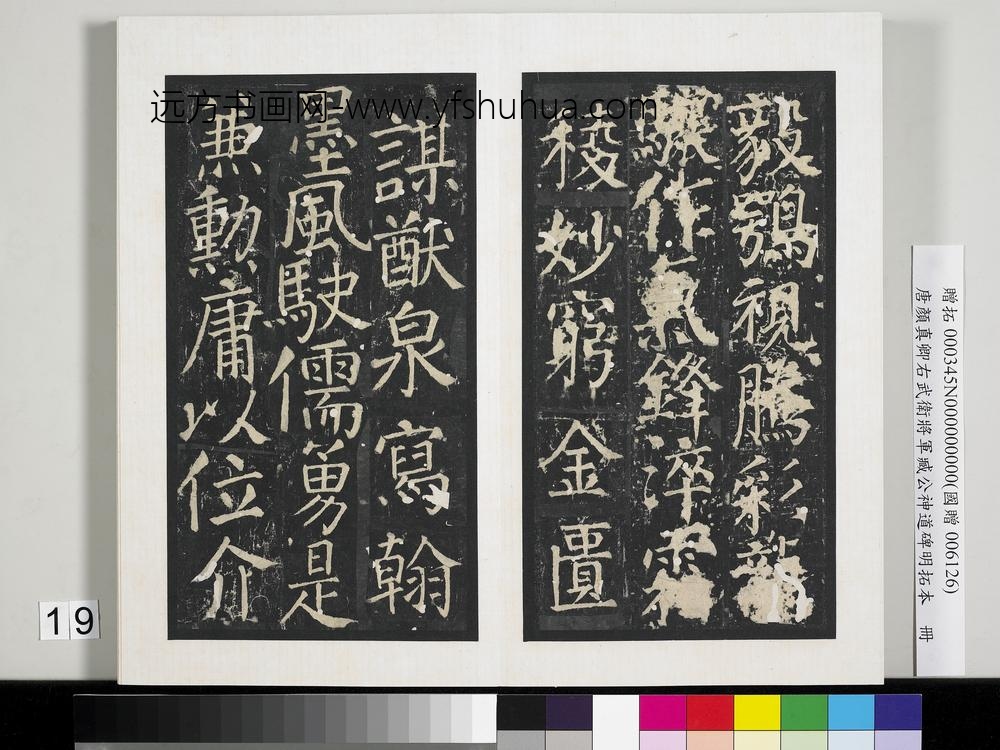 远方书画网-www.yfshuhua.com
毅鶚視騰彩龍
驤作氣鋒淬霜
稜妙窮金匱
謀猷泉寫翰
墨風駛儒勇是
兼勳庸以位介
贈拓 000345N000000000(國贈 006126)
唐顏真卿右武衛將軍臧公神道碑明拓本 冊
19